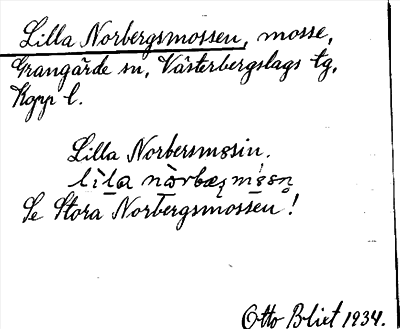 Lilla Norbergsmossen, mosse,
Grangärde sn, Västerbergslags tg,
Kopp l.
Lilla Norbersmosin.
Se Stora Norbergsmossen!
Otto Blixt 1934.